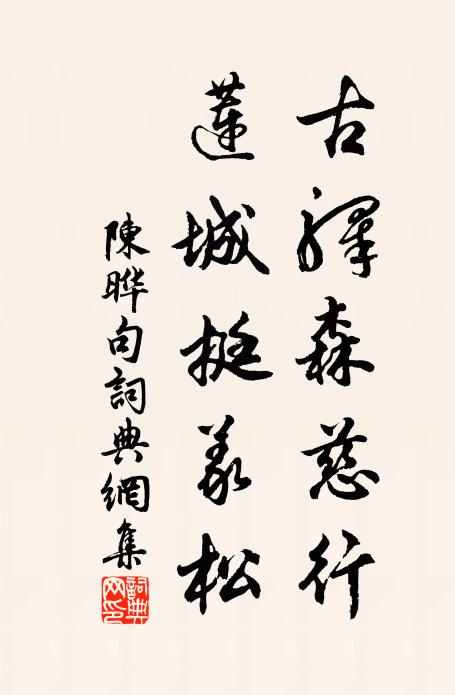 古驛森慈行
蓮城挺義松
陳晔句詞典網集
詞典网印